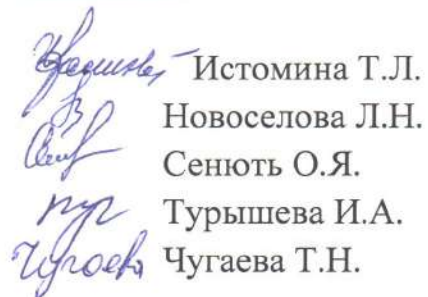 Истомина Т.Л.
Новоселова Л.Н.
Сенють О.Я.
Турышева И.А.
Чугаева Т.Н.